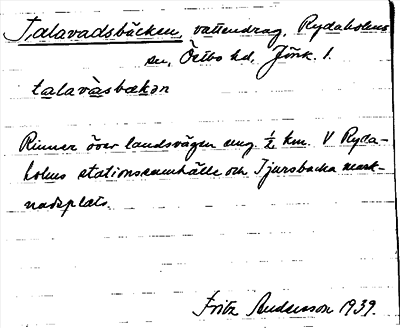 Talavadsbäcken, vattendrag, Rydaholms
sn, Östbo hd, Jönk. l.
talavàsbækən
Rinner över landsvägen omg. ½ km. V Ryda-
holms stationssamhälle och Tjursbacka mark-
nadsplats.
Fritz Andersson 1939.